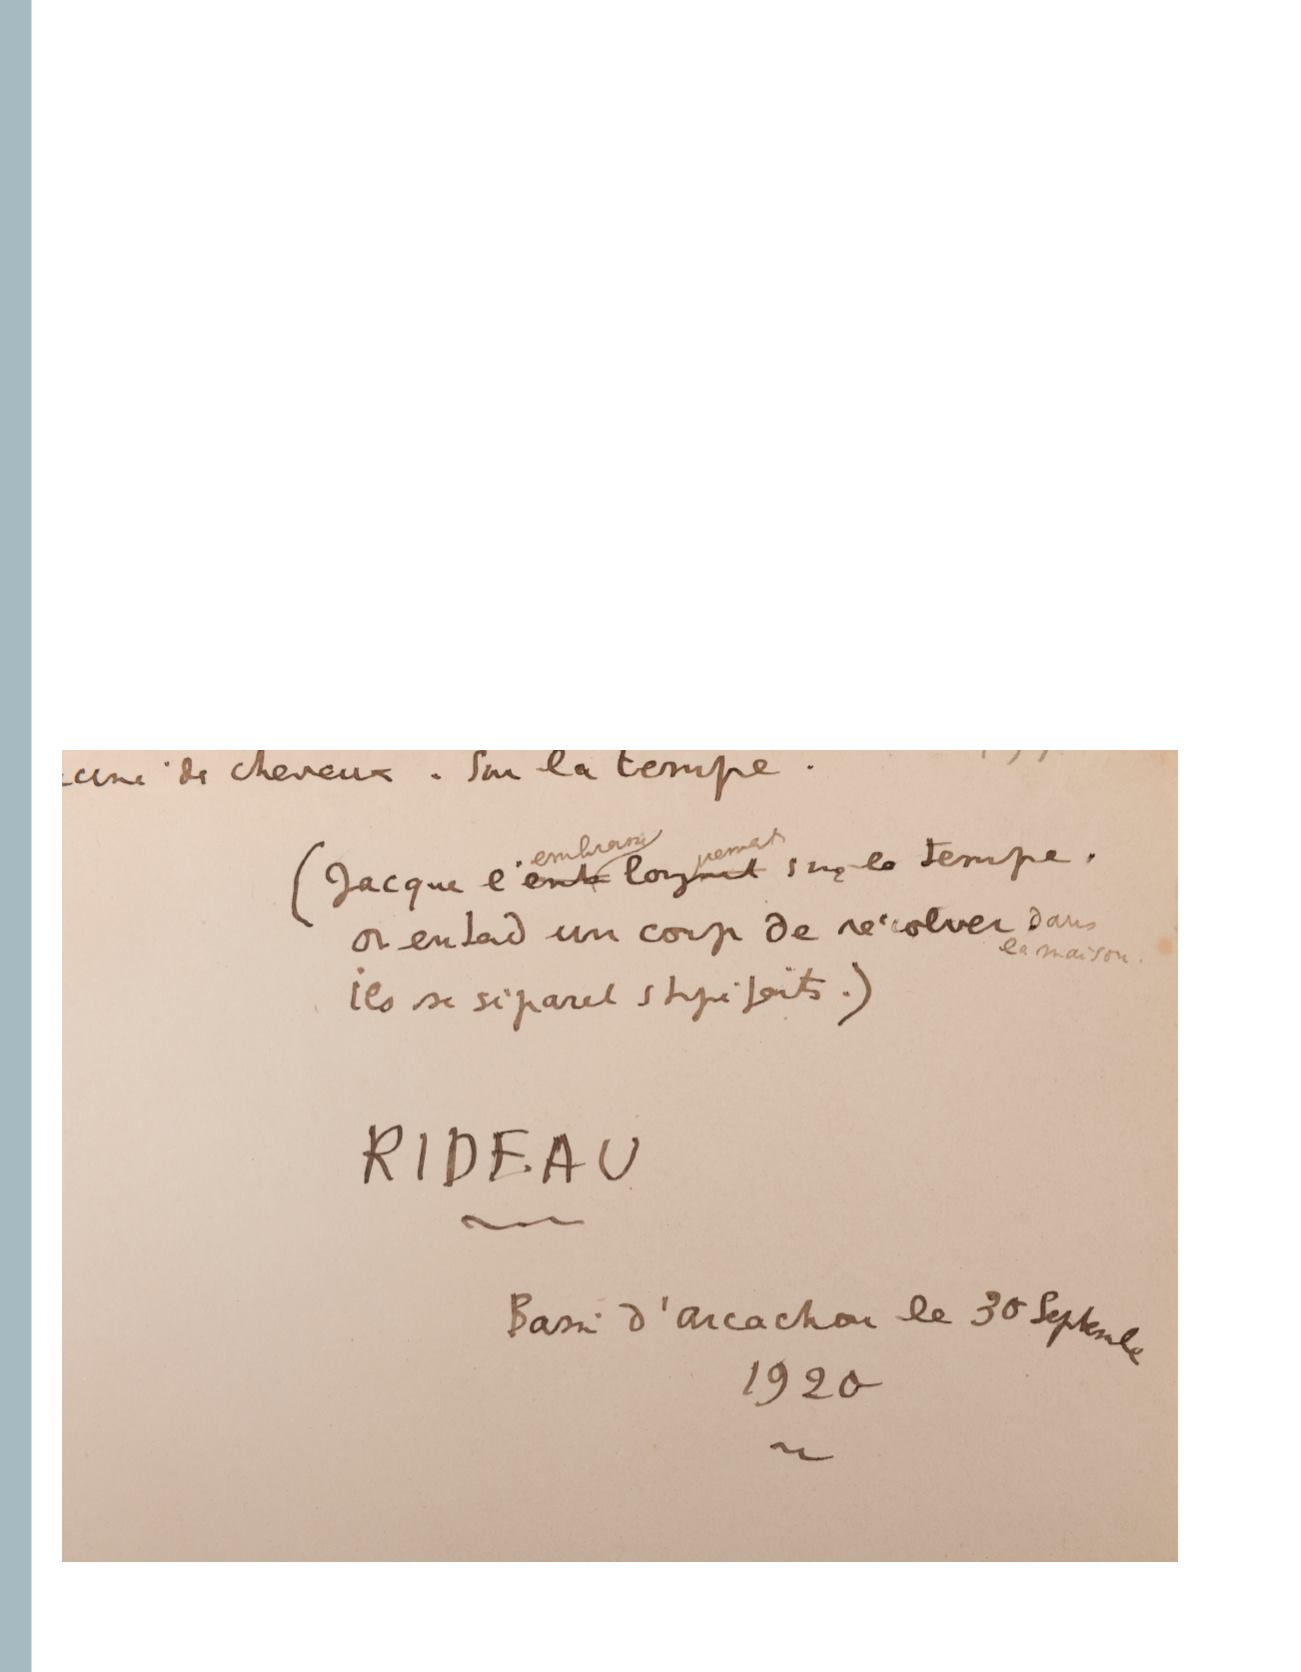 de cheveux. Sur la tempe.
embrasse
(Jacque l'ente longuement sur la tempe.
on entend un coup de revolver dans
la maison.
ils se séparent stupéfaits.)
RIDEAU
Bassin d'Arcachon le 30 Septembre
1920